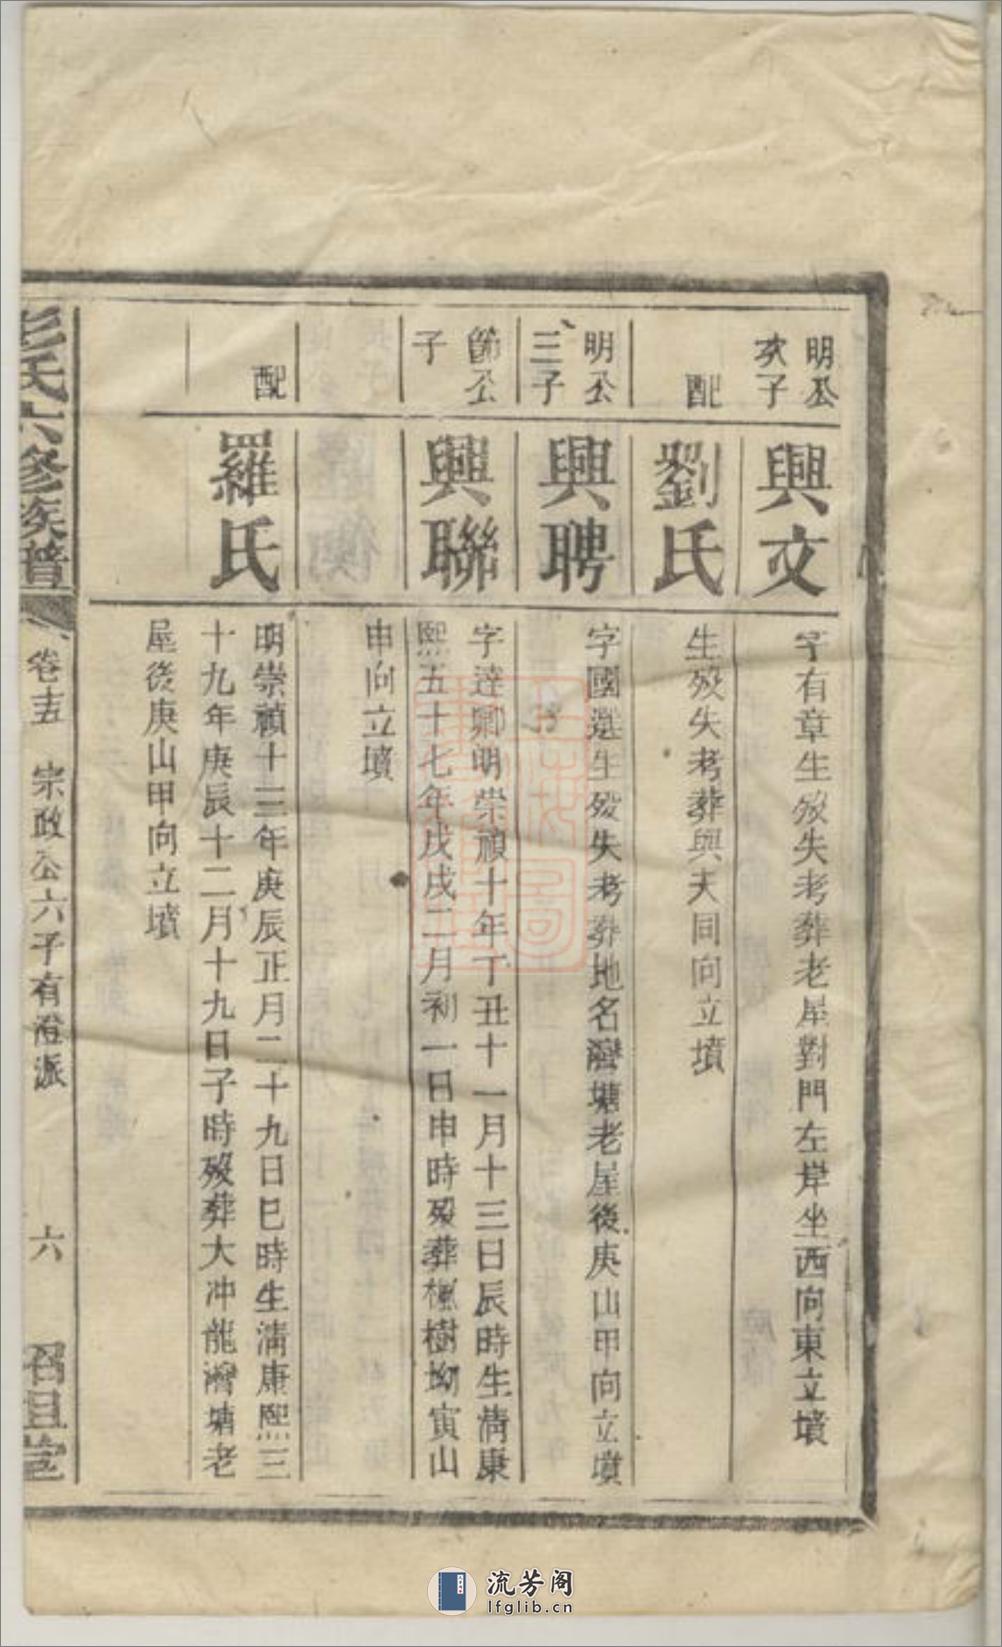 明公
次子
興文
字有章生歿失考葬老屋對門左岸坐西向東立墳
配
劉氏
生歿失考葬與夫同向立墳
明公
三子
興聘
字國選生歿失考葬地名灣塘老屋後庚山甲向立墳
節公
子
興聯
字達卿明崇禎十年丁丑十一月十三日辰時生清康
熙五十七年戊戌二月初一日申時歿葬楓樹坳寅山
申向立墳
配
羅氏
明崇禎十三年庚辰正月二十九日巳時生清康熙三
十九年庚辰十二月十九日子時歿葬大冲龍灣塘老
屋後庚山甲向立墳
彭氏六修族譜
卷十五 宗政公六子有澄派
六
紹祖堂
流芳阁
lfglib.cn